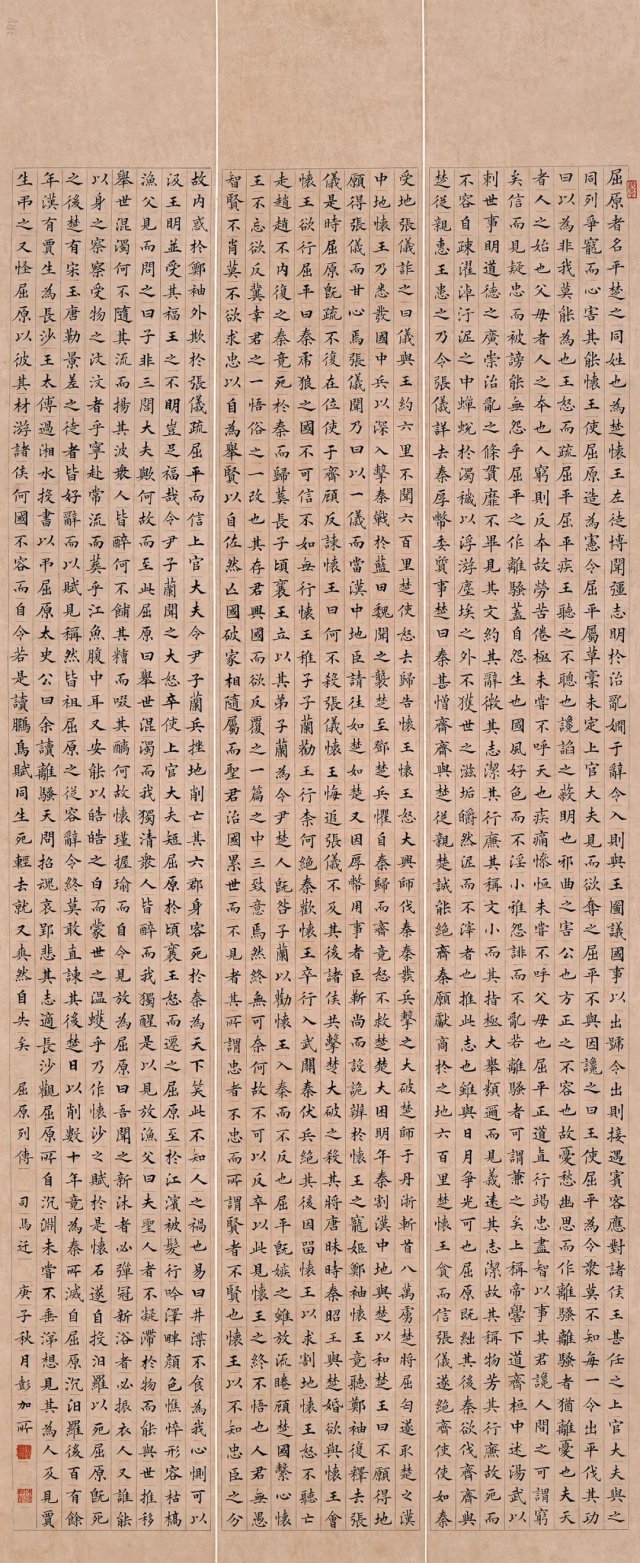 屈原者名平楚之同姓也為楚懷王左徒博聞彊志明於治亂嫺于辭令入則與王圖議國事以出號令出則接遇賓客應對諸侯王甚任之上官大夫與之
同列爭寵而心害其能懷王使屈原造為憲令屈平屬草稾未定上官大夫見而欲奪之屈平不與因讒之曰王使屈平為令衆莫不知每一令出平伐其功
曰以為非我莫能為也王怒而疏屈平屈平疾王聽之不聰也讒諂之蔽明也邪曲之害公也方正之不容也故憂愁幽思而作離騷離騷者猶離憂也夫天
者人之始也父母者人之本也人窮則反本故勞苦倦極未嘗不呼天也疾痛慘怛未嘗不呼父母也屈平正道直行竭忠盡智以事其君讒人間之可謂窮
矣信而見疑忠而被謗能無怨乎屈平之作離騷蓋自怨生也國風好色而不淫小雅怨誹而不亂若離騷者可謂兼之矣上稱帝嚳下道齊桓中述湯武以
刺世事明道德之廣崇治亂之條貫靡不畢見其文約其辭微其志潔其行廉其稱文小而其指極大舉類邇而見義遠其志潔故其稱物芳其行廉故死而
不容自疎濯淖汙泥之中蟬蛻於濁穢以浮游塵埃之外不獲世之滋垢皭然泥而不滓者也推此志也雖與日月爭光可也屈原既絀其後秦欲伐齊齊與
楚從親惠王患之乃令張儀詳去秦厚幣委質事楚曰秦甚憎齊齊與楚從親楚誠能絕齊秦願獻商於之地六百里楚懷王貪而信張儀遂絕齊使使如秦
受地張儀詐之曰儀與王約六里不聞六百里楚使怒去歸告懷王懷王怒大興師伐秦秦發兵擊之大破楚師于丹淅斬首八萬虜楚將屈匄遂取楚之漢
中地懷王乃悉發國中兵以深入擊秦戰於藍田魏聞之襲楚至鄧楚兵懼自秦歸而齊竟怒不救楚楚大困明年秦割漢中地與楚以和楚王曰不願得地
願得張儀而甘心焉張儀聞乃曰以一儀而當漢中地臣請往如楚如楚又因厚幣用事者臣靳尚而設詭辯於懷王之寵姬鄭袖懷王竟聽鄭袖復釋去張
儀是時屈原既疏不復在位使于齊顧反諫懷王曰何不殺張儀懷王悔追張儀不及其後諸侯共擊楚大破之殺其將唐昧時秦昭王與楚婚欲與懷王會
懷王欲行屈平曰秦虎狼之國不可信不如無行懷王稚子子蘭勸王行柰何絕秦歡懷王卒行入武關秦伏兵絕其後因留懷王以求割地懷王怒不聽亡
走趙趙不內復之秦竟死於秦而歸葬長子頃襄王立以其弟子蘭為令尹楚人既咎子蘭以勸懷王入秦而不反也屈平既嫉之雖放流睠顧楚國繫心懷
王不忘欲反冀幸君之一悟俗之一改也其存君興國而欲反覆之一篇之中三致意焉然終無可奈何故不可以反卒以此見懷王之終不悟也人君無愚
智賢不肖莫不欲求忠以自為舉賢以自佐然亡國破家相隨屬而聖君治國累世而不見者其所謂忠者不忠而所謂賢者不賢也懷王以不知忠臣之分
故內惑於鄭袖外欺於張儀疏屈平而信上官大夫令尹子蘭兵挫地削亡其六郡身客死於秦為天下笑此不知人之禍也易曰井渫不食為我心惻可以
汲王明並受其福王之不明豈足福哉令尹子蘭聞之大怒卒使上官大夫短屈原於頃襄王怒而遷之屈原至於江濱被髮行吟澤畔顏色憔悴形容枯槁
漁父見而問之曰子非三閭大夫歟何故而至此屈原曰舉世混濁而我獨清衆人皆醉而我獨醒是以見放漁父曰夫聖人者不凝滯於物而能與世推移
舉世混濁何不隨其流而揚其波衆人皆醉何不餔其糟而啜其醨何故懷瑾握瑜而自令見放為屈原曰吾聞之新沐者必彈冠新浴者必振衣人又誰能
以身之察察受物之汶汶者乎寧赴常流而葬乎江魚腹中耳又安能以皓皓之白而蒙世之溫蠖乎乃作懷沙之賦於是懷石遂自投汨羅以死屈原既死
之後楚有宋玉唐勒景差之徒者皆好辭而以賦見稱然皆祖屈原之從容辭令終莫敢直諫其後楚日以削數十年竟為秦所滅自屈原沉汨羅後百有餘
年漢有賈生為長沙王太傅過湘水投書以弔屈原太史公曰余讀離騷天問招魂哀郢悲其志適長沙觀屈原所自沉淵未嘗不垂涕想見其為人及見賈
生弔之又怪屈原以彼其材游諸侯何國不容而自令若是讀鵩鳥賦同生死輕去就又爽然自失矣 屈原列傳 司馬迁 庚子秋月彭加所